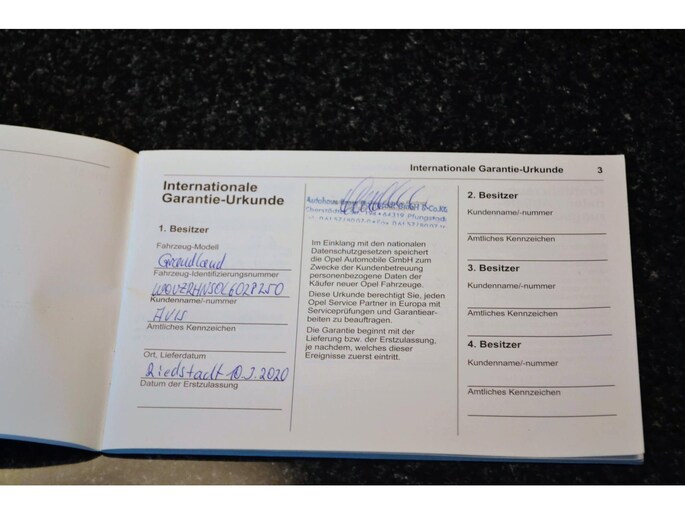 Internationale Garantie-Urkunde 3
Internationale
Garantie-Urkunde
1. Besitzer
Fahrzeug-Modell
Grandland
Fahrzeug-Identifizierungsnummer
Kundenname/-nummer
AVIS
Amtliches Kennzeichen
Ort, Lieferdatum
Riedstadt
Datum der Erstzulassung
64319 Pfungstadt
Im Einklang mit den nationalen
Datenschutzgesetzen speichert
die Opel Automobile GmbH zum
Zwecke der Kundenbetreuung
personenbezogene Daten der
Käufer neuer Opel Fahrzeuge.
Diese Urkunde berechtigt Sie, jeden
Opel Service Partner in Europa mit
Serviceprüfungen und Garantiear-
beiten zu beauftragen.
Die Garantie beginnt mit der
Lieferung bzw. der Erstzulassung,
je nachdem, welches dieser
Ereignisse zuerst eintritt.
2. Besitzer
Kundenname/-nummer
Amtliches Kennzeichen
3. Besitzer
Kundenname/-nummer
Amtliches Kennzeichen
4. Besitzer
Kundenname/-nummer
Amtliches Kennzeichen